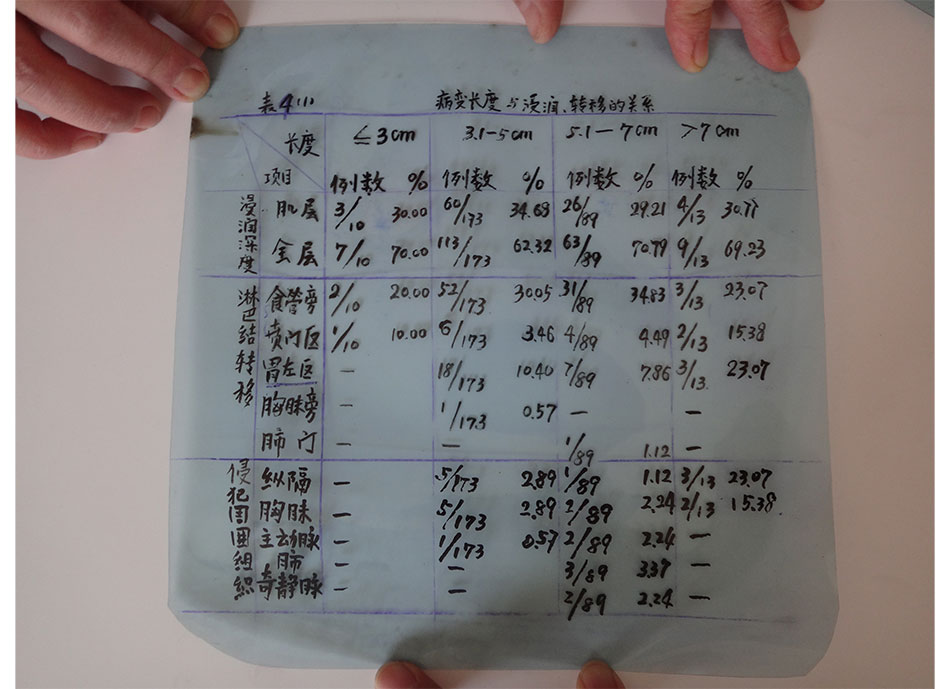 表4(1) 病变长度与浸润、转移的关系
长度 ≦3cm 3.1-5cm 5.1-7cm >7cm
项目 例数 % 例数 % 例数 % 例数 %
浸润深度 肌层 3/10 30.00 60/173 34.68 26/89 29.21 4/13 30.77
全层 7/10 70.00 113/173 62.32 63/89 70.79 9/13 69.23
淋巴结转移 食管旁 2/10 20.00 52/173 30.05 31/89 34.83 3/13 23.07
贲门区 1/10 10.00 6/173 3.46 4/89 4.49 2/13 15.38
胃左区 - 18/173 10.40 7/89 7.86 3/13. 23.07
胸膜旁 - 1/173 0.57 - -
肺门 - - 1/89 1.12 -
侵犯周围组织 纵隔 - 5/173 2.89 1/89 1.12 3/13 23.07
胸膜 - 5/173 2.89 2/89 2.24 2/13 15.38
主动脉 - 1/173 0.57 2/89 2.24 -
肺 - - 3/89 3.37 -
奇静脉 - - 2/89 2.24 -